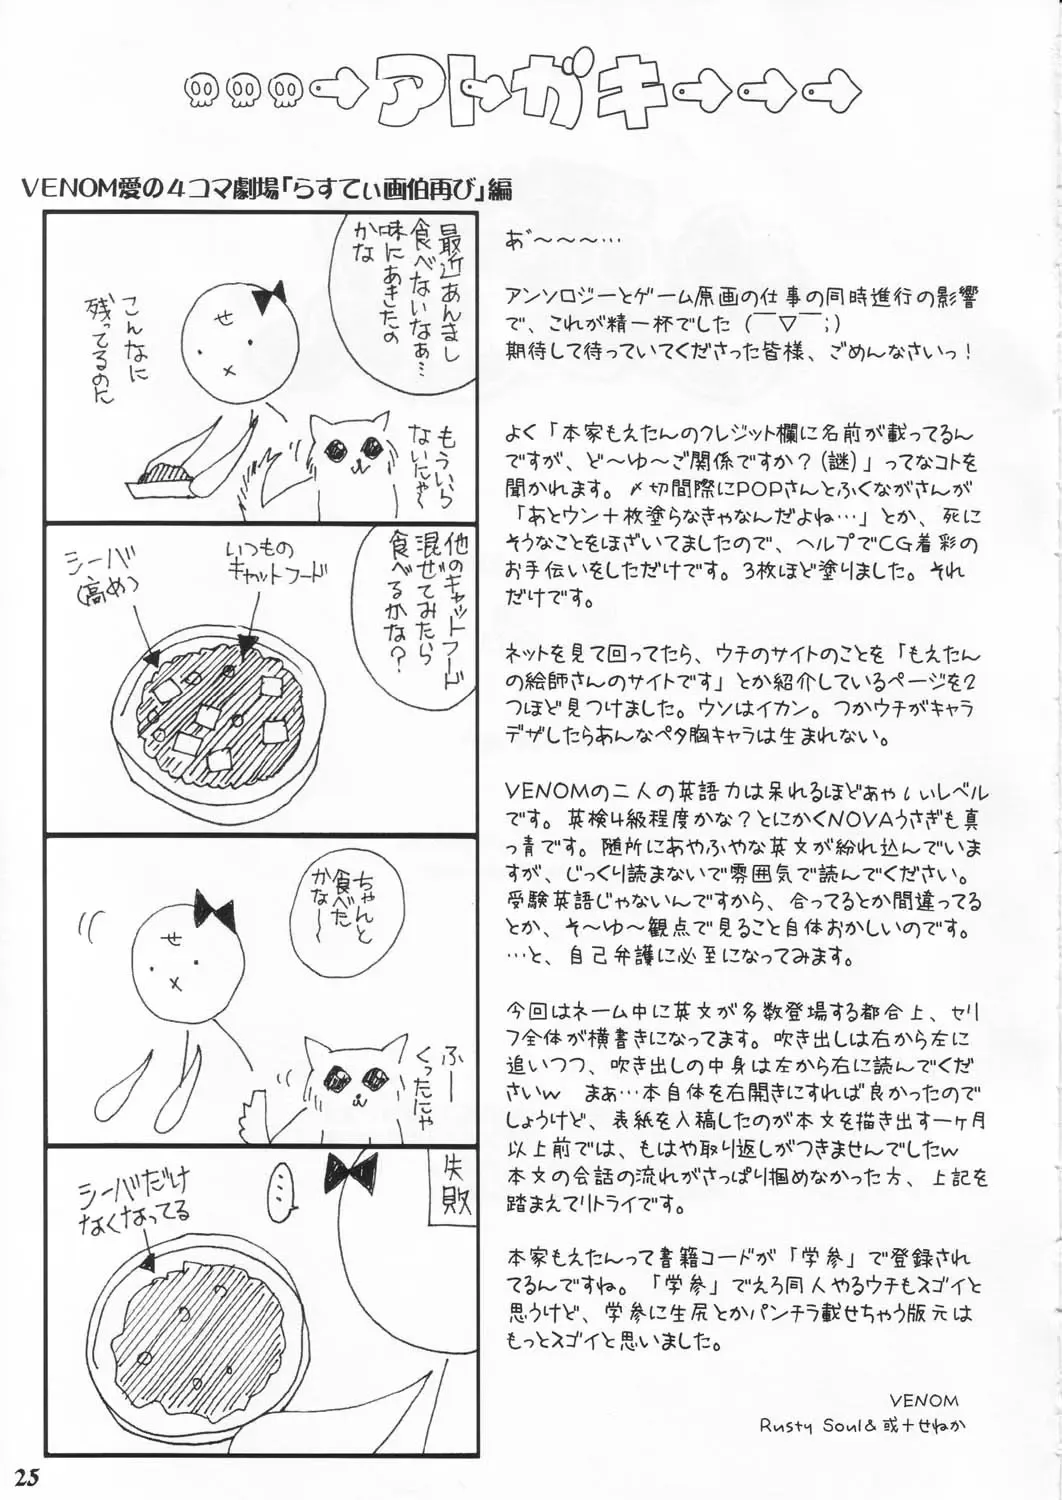 アトガキ
VENOM愛の4コマ劇場「らすてぃ画伯再び」編
最近あんまし
食べないなぁ…
味にあきたの
かな
せ
こんなに
残ってるのに
もういら
ないにゃ〜
他のキャットフード
混ぜてみたら
食べるかな?
いつもの
キャットフード
シーバ
(高め)
ちゃんと
食べた
かな〜
せ
ふー
くったにゃ
失敗
……
シーバだけ
なくなってる
あ゛〜〜〜…
アンソロジーとゲーム原画の仕事の同時進行の影響
で、これが精一杯でした(￣▽￣;)
期待して待っていてくださった皆様、ごめんなさいっ!
よく「本家もえたんのクレジット欄に名前が載ってるん
ですが、ど〜ゆ〜ご関係ですか?(謎)」ってなコトを
聞かれます。〆切間際にPOPさんとふくながさんが
「あとウン十枚塗らなきゃなんだよね…」とか、死に
そうなことをほざいてましたので、ヘルプでCG着彩の
お手伝いをしただけです。3枚ほど塗りました。それ
だけです。
ネットを見て回ってたら、ウチのサイトのことを「もえたん
の絵師さんのサイトです」とか紹介しているページを2
つほど見つけました。ウソはイカン。つかウチがキャラ
デザしたらあんなペタ胸キャラは生まれない。
VENOMの二人の英語力は呆れるほどあゃιぃレベル
です。英検4級程度かな?とにかくNOVAうさぎも真
っ青です。随所にあやふやな英文が紛れ込んでいま
すが、じっくり読まないで雰囲気で読んでください。
受験英語じゃないんですから、合ってるとか間違ってる
とか、そ〜ゆ〜観点で見ること自体おかしいのです。
…と、自己弁護に必至になってみます。
今回はネーム中に英文が多数登場する都合上、セリ
フ全体が横書きになってます。吹き出しは右から左に
追いつつ、吹き出しの中身は左から右に読んでくだ
さいw　まぁ…本自体を右開きにすれば良かったので
しょうけど、表紙を入稿したのが本文を描き出す一ヶ月
以上前では、もはや取り返しがつきませんでしたw
本文の会話の流れがさっぱり掴めなかった方、上記を
踏まえてリトライです。
本家もえたんって書籍コードが「学参」で登録され
てるんですね。「学参」でえろ同人やるウチもスゴイと
思うけど、学参に生尻とかパンチラ載せちゃう版元は
もっとスゴイと思いました。
VENOM
Rusty Soul&或十せねか
25